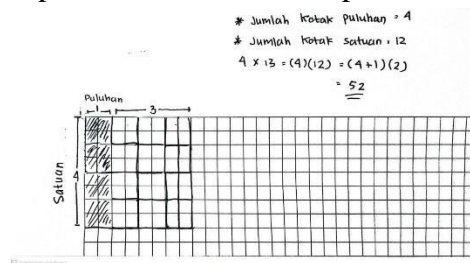 * Jumlah kotak puluhan = 4
* Jumlah kotak satuan = 12
4 x 13 = (4)(12) = (4+1)(2)
= 52
Puluhan
1 3
Satuan
4